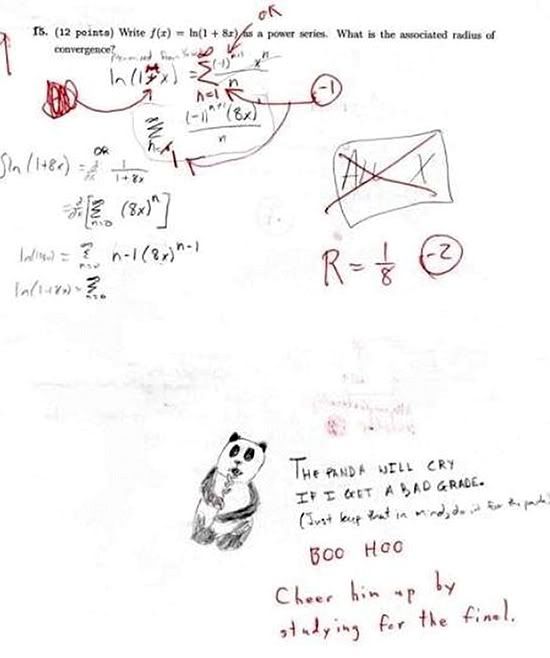 OK
T5. (12 points) Write f(x) = ln(1 + 8x) as a power series. What is the associated radius of
convergence?
9
ln(1+x) = ∞ Σ n=1 (-1)ⁿ⁺¹ xⁿ / n
-1
∞ Σ n=1 (-1)ⁿ⁺¹ (8x)ⁿ / n
OR
ln(1+8x) = 1 / 1+8x
[∞ Σ n=0 (8x)ⁿ]
∞ Σ n-1(8x)ⁿ⁻¹
ln(1+8x) = ∞ Σ n=0
All X
R = 1/8
-2
THE PANDA WILL CRY
IF I GET A BAD GRADE.
(Just keep that in mind, do it for the panda)
BOO HOO
Cheer him up by
studying for the final.